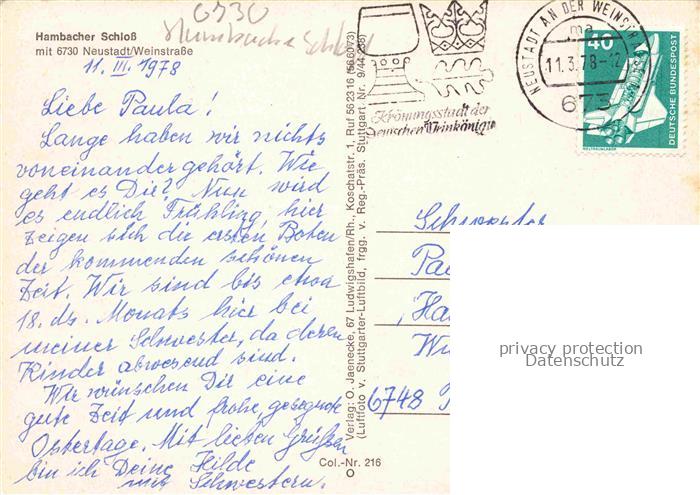 6730
Hambacher Schloß
Hambacher Schloß
mit 6730 Neustadt/Weinstraße
11. III. 1978
Liebe Paula!
Lange haben wir nichts
voneinander gehört. Wie
geht es Dir? Nun wird
es endlich Frühling, hier
zeigen sich die ersten Boten
der kommenden schönen
Zeit. Wir sind bis etwa
18. ds. Monats hier bei
meiner Schwester, da deren
Kinder abwesend sind.
Wir wünschen Dir eine
gute Zeit und frohe, gesegnete
Ostertage. Mit lieben Grüßen
bin ich Deine Hilde
mit Schwestern.
Verlag: O. Jaenecke, 67 Ludwigshafen/Rh., Koschatstr. 1, Ruf 562316 (566073)
(Luftfoto v. Stuttgarter-Luftbild, frgg. v. Reg.-Präs. Stuttgart Nr. 9/44236)
Col.-Nr. 216
O
Krönungsstadt der
Deutschen Weinkönigin
NEUSTADT AN DER WEINSTR
ma
11.3.78-12
673
40
DEUTSCHE BUNDESPOST
WELTRAUMLABOR
Schwester
Pau
Ha
6748
privacy protection
Datenschutz